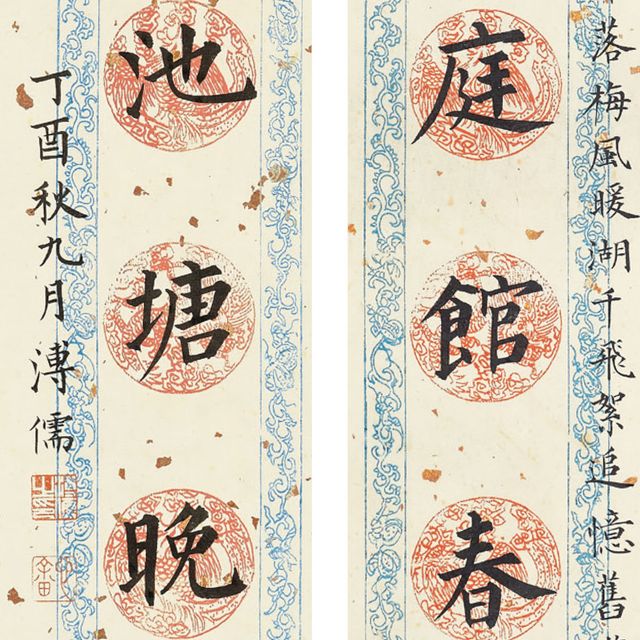 落梅風暖湖千飛絮追憶舊
庭館春
池塘晚
丁酉秋九月溥儒